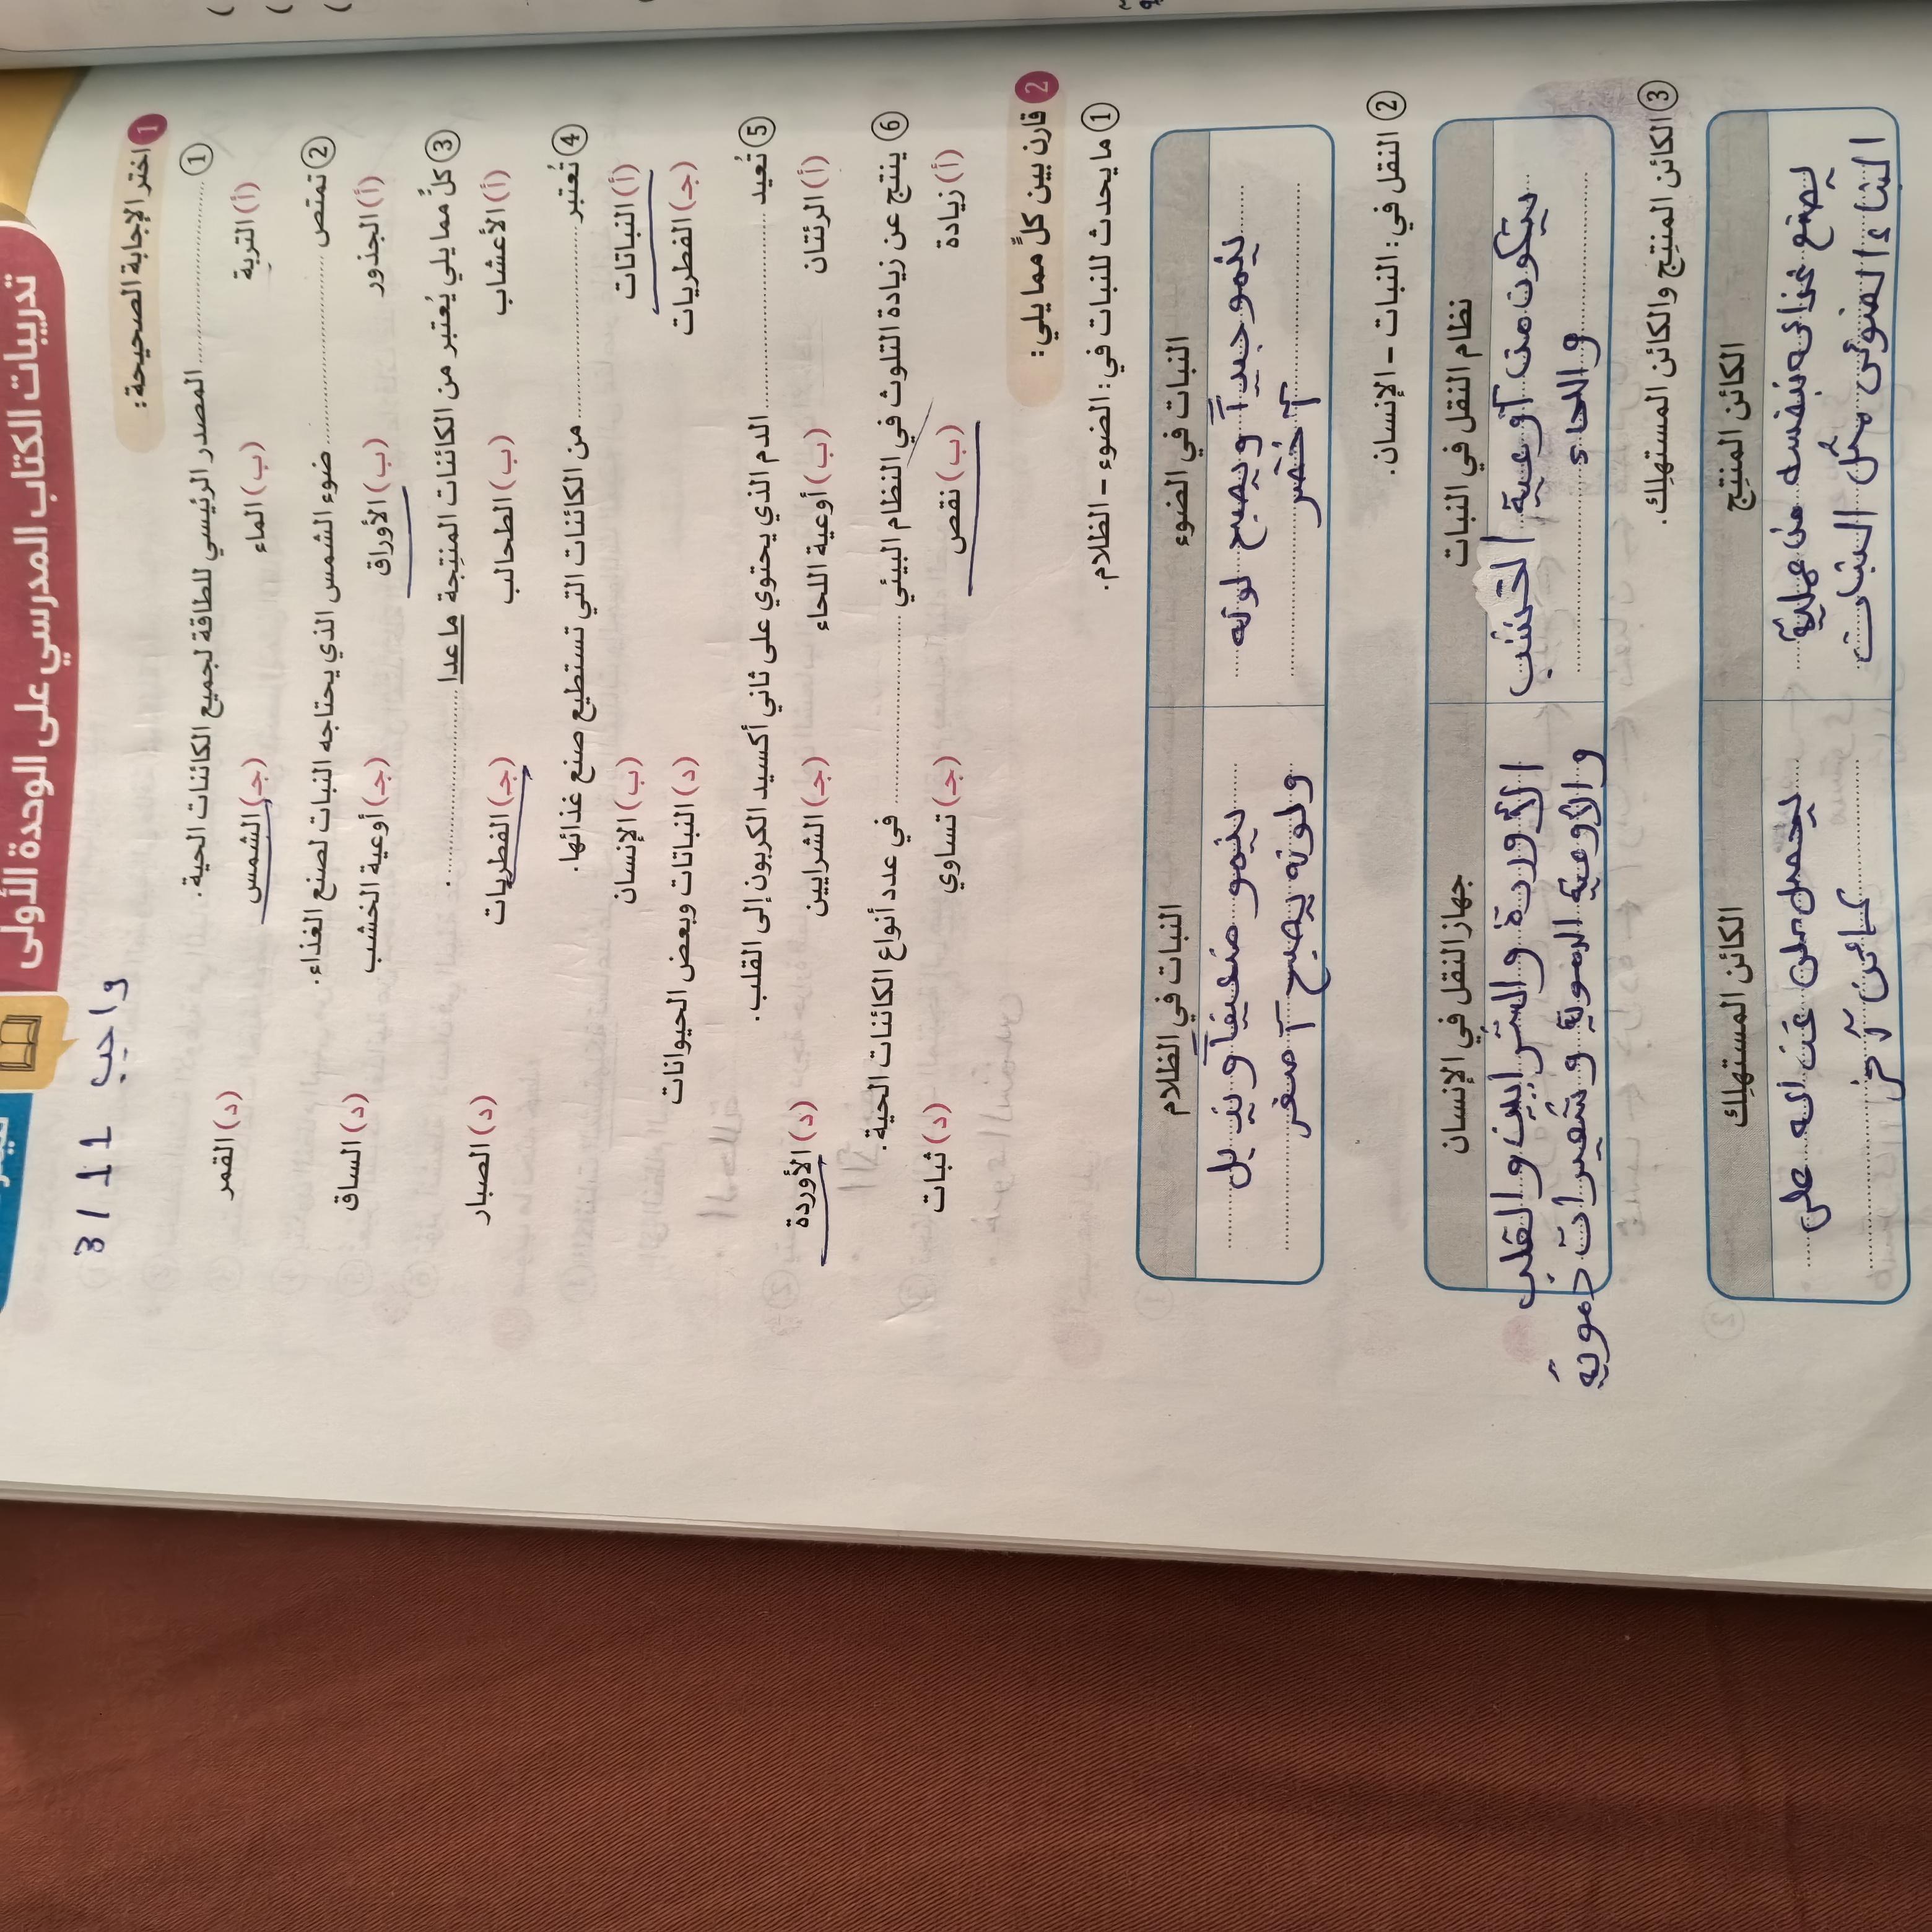 تدريبات الكتاب المدرسي على الوحدة الأولى
واجب 3/11
1 اختر الإجابة الصحيحة:
1 .................... المصدر الرئيسي للطاقة لجميع الكائنات الحية.
(أ) التربة (ب) الماء (جـ) الشمس (د) القمر
2 تمتص .................... ضوء الشمس الذي يحتاجه النبات لصنع الغذاء.
(أ) الجذور (ب) الأوراق (جـ) أوعية الخشب (د) الساق
3 كلٌ مما يلي يُعتبر من الكائنات المنتِجة ماعدا ....................
(أ) الأعشاب (ب) الطحالب (جـ) الفطريات (د) الصبار
4 تُعتبر .................... من الكائنات التي تستطيع صنع غذائها.
(أ) النباتات (ب) الإنسان
(جـ) الفطريات (د) النباتات وبعض الحيوانات
5 تُعيد .................... الدم الذي يحتوي على ثاني أكسيد الكربون إلى القلب.
(أ) الرئتان (ب) أوعية اللحاء (جـ) الشرايين (د) الأوردة
6 ينتج عن زيادة التلوث في النظام البيئي .................... في عدد أنواع الكائنات الحية.
(أ) زيادة (ب) نقص (جـ) تساوي (د) ثبات
2 قارن بين كلٍّ مما يلي:
1 ما يحدث للنبات في: الضوء - الظلام.
النبات في الضوء النبات في الظلام
ينمو جيداً ويصبح لونه ينمو ضعيفاً ويذبل
أخضر ولونه يصبح أصفر
2 النقل في: النبات - الإنسان.
نظام النقل في النبات جهاز النقل في الإنسان
يتكون من أوعية الخشب الأوردة والشرايين والقلب
واللحاء والأوعية الدموية وشعيرات دموية
3 الكائن المنتِج والكائن المستهلِك.
الكائن المنتِج الكائن المستهلِك
يصنع غذائه بنفسه من عملية يحصل على غذائه على
البناء الضوئى مثل النبات كائن آخر